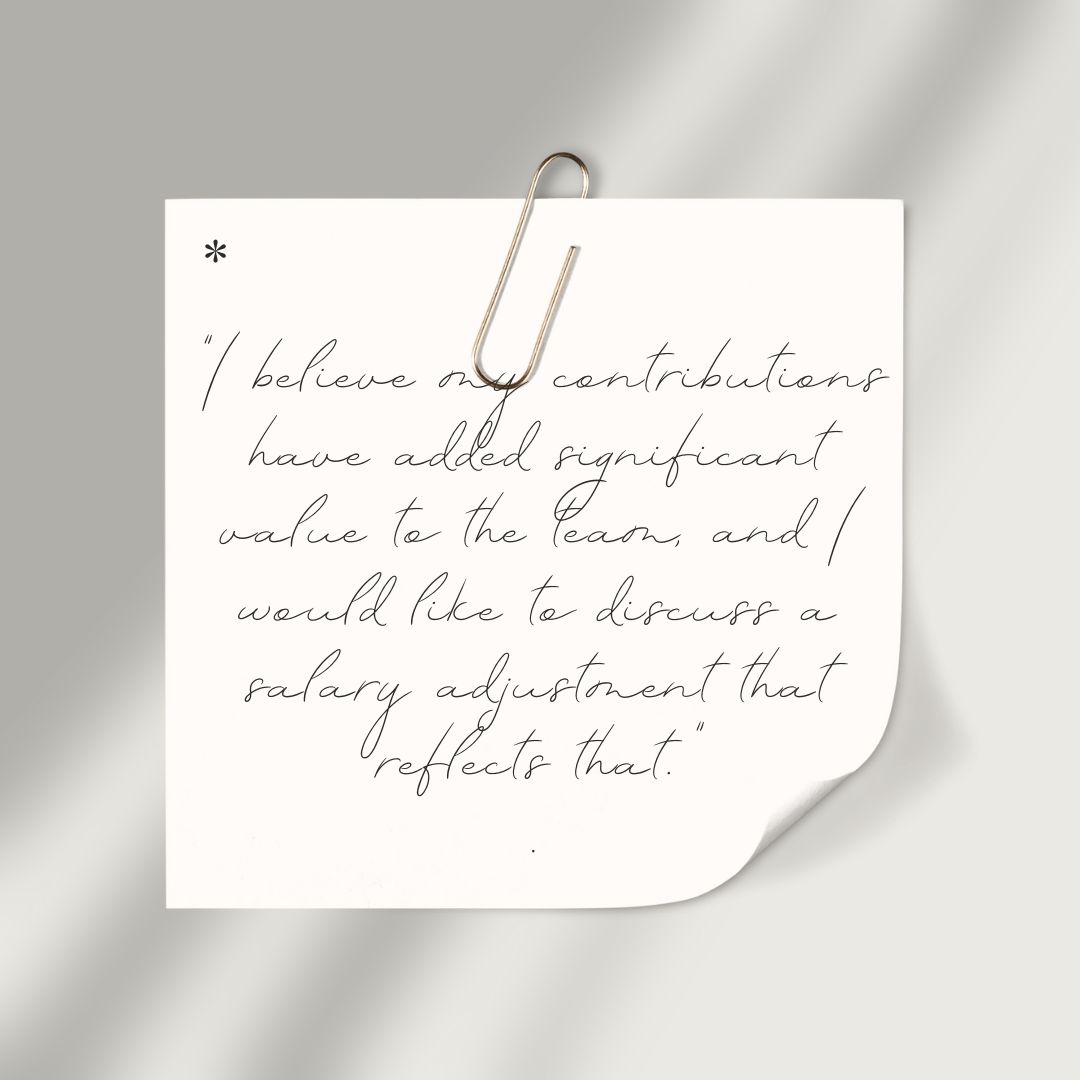 *
"I believe my contributions
have added significant
value to the team, and I
would like to discuss a
salary adjustment that
reflects that."
.